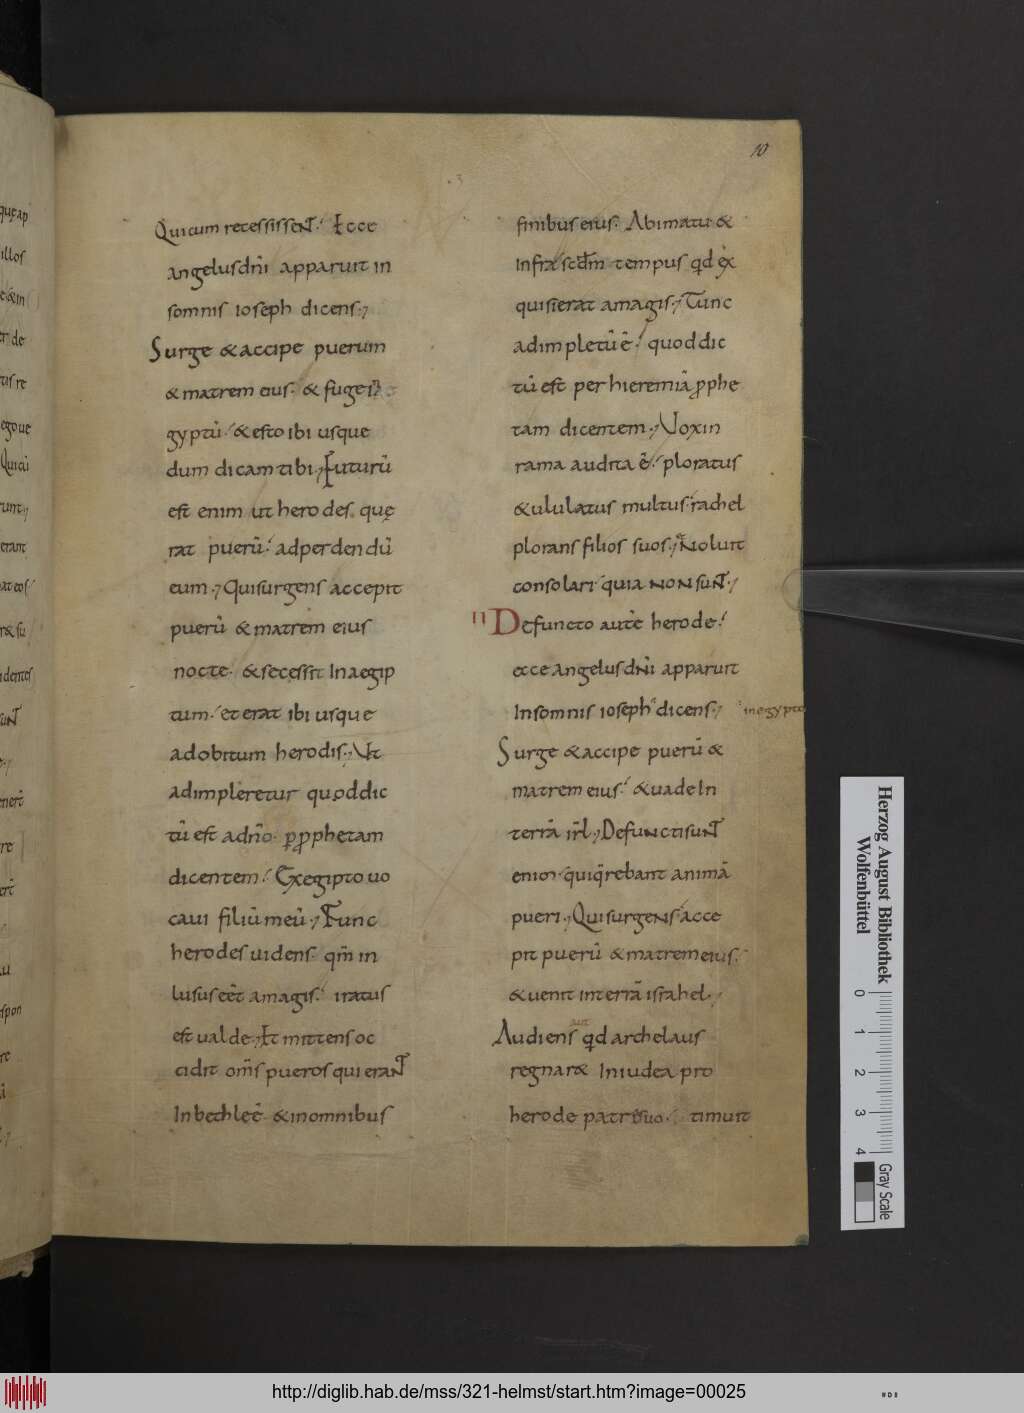 10
Quicum recessissent. Ecce
angelus dn̄i apparuit in
somnis ioseph dicens.
Surge & accipe puerum
& matrem eius. & fuge in
gyptū. & esto ibi usque
dum dicam tibi. Futurū
est enim ut herodes quę
rat puerū. ad perdendū
eum. Qui surgens accepit
puerū & matrem eius
nocte. & secessit In aegip
tum. et erat ibi usque
ad obitum herodis. Ut
adimpleretur quod dic
tū est ad n̄o. p̱ p̱phetam
dicentem. Ex egipto uo
caui filiū meū. Tunc
herodes uidens. qm̄ in
lusus eēt a magis. iratus
est ualde. Et mittens oc
cidit om̄s pueros qui erant
In bethleē & in omnibus
finibus eius. A bimatu &
infra scd̄m tempus qd ex
quisierat a magis. Tunc
adimpletū ē. quod dic
tū est per hieremiā p̱phe
tam dicentem. Vox in
rama audita ē. ploratus
& ululatus multus. rachel
plorans filios suos. & Noluit
consolari quia NON sunt.
II Defuncto autē herode.
ecce angelus dn̄i apparuit
In somnis ioseph dicens. in egypto
Surge & accipe puerū &
matrem eius. & uade In
terrā isr̄l. Defuncti sunt
enim. qui q̄rebant animā
pueri. Qui surgens acce
pit puerū & matrem eius.
& uenit in terrā israhel.
aut
Audiens qd archelaus
regnar& In iudea pro
herode patre suo. timuit
quęap
illos
e&in
de
tis re
ego ue
Quicū
runt
erant
at eos
r& su
identes
sunt
nert
re
ert
u
spon
re
Herzog August Bibliothek
Wolfenbüttel
0 1 2 3 4
Gray Scale
http://diglib.hab.de/mss/321-helmst/start.htm?image=00025